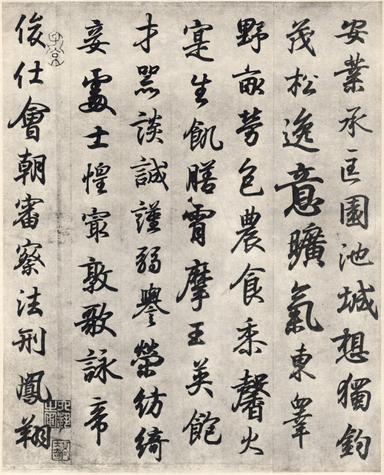 安業承匡園池城想獨
茂松逸意曠氣東皋
野畝勞包農食黍馨火
寔生飢膳霄摩王美飽
才器談誠謹弱譽榮紡綺
妾處士惶寂敦歌詠帝
俊仕會朝審察法刑鳳翔